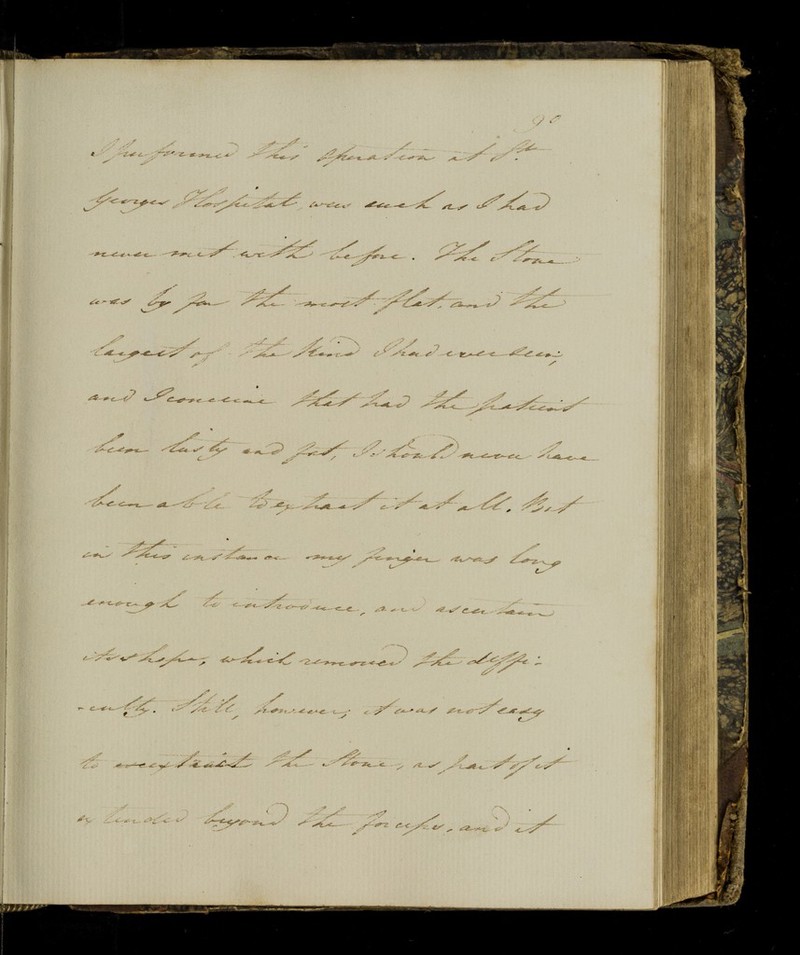 90
I performed this operation at St
Georges Hospital, was such as I had
never met with before. The Stone
was by far the most flat, and the
largest of the Kind I had ever seen;
and I conceive that had the patient
been lusty and fat, I should never have
been able to extract it at all. But
in this instance my finger was long
enough to introduce, and ascertain
its shape, which removed the diffi-
-culty. Still, however, it was not easy
to extract the Stone, as part of it
extended beyond the forceps, and it